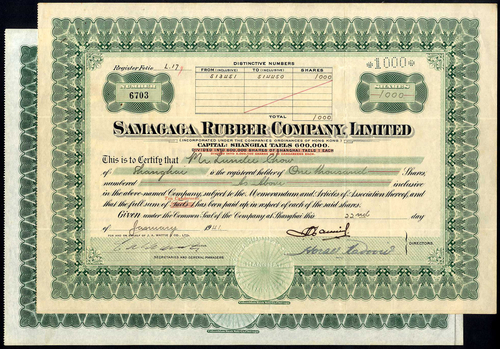 DISTINCTIVE NUMBERS
Register Folio L.17
FROM (INCLUSIVE) TO (INCLUSIVE) SHARES
513451 514450 1000
*1000*
NUMBER
6703
SHARES
1000
TOTAL 1000
SAMAGAGA RUBBER COMPANY, LIMITED
(INCORPORATED UNDER THE COMPANIES ORDINANCES OF HONG KONG)
CAPITAL: SHANGHAI TAELS 600,000.
DIVIDED INTO 600,000 SHARES OF SHANGHAI TAELS 1 EACH
This is to Certify that Mr.
of Shanghai is the registered holder of One thousand Shares,
numbered as above inclusive
in the above-named Company, subject to the Memorandum and Articles of Association thereof, and
that the full sum of Taels 1 has been paid up in respect of each of the said shares.
Given under the Common Seal of the Company at Shanghai this 22nd day
of January 1941
DIRECTORS.
SECRETARIES AND GENERAL MANAGERS